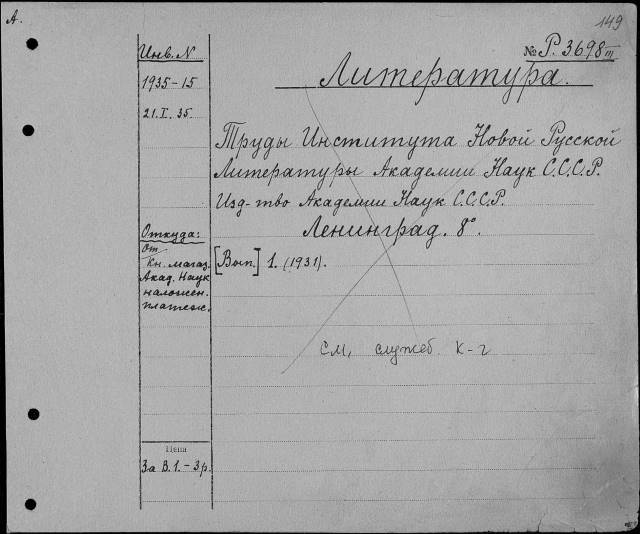 А.
149
Инв. N
№ Р. 3698 III
Литература.
1935-15
21.I.35.
Труды Института Новой Русской
Литературы Академии Наук С.С.С.Р.
Изд-тво Академии Наук С.С.С.Р.
Ленинград. 8°.
Откуда:
От
Кн. магаз.
Акад. Наук
наложен.
платеж.
[Вып.] 1. (1931).
См. служеб. к-г
Цена
За В. 1. – 3 р.